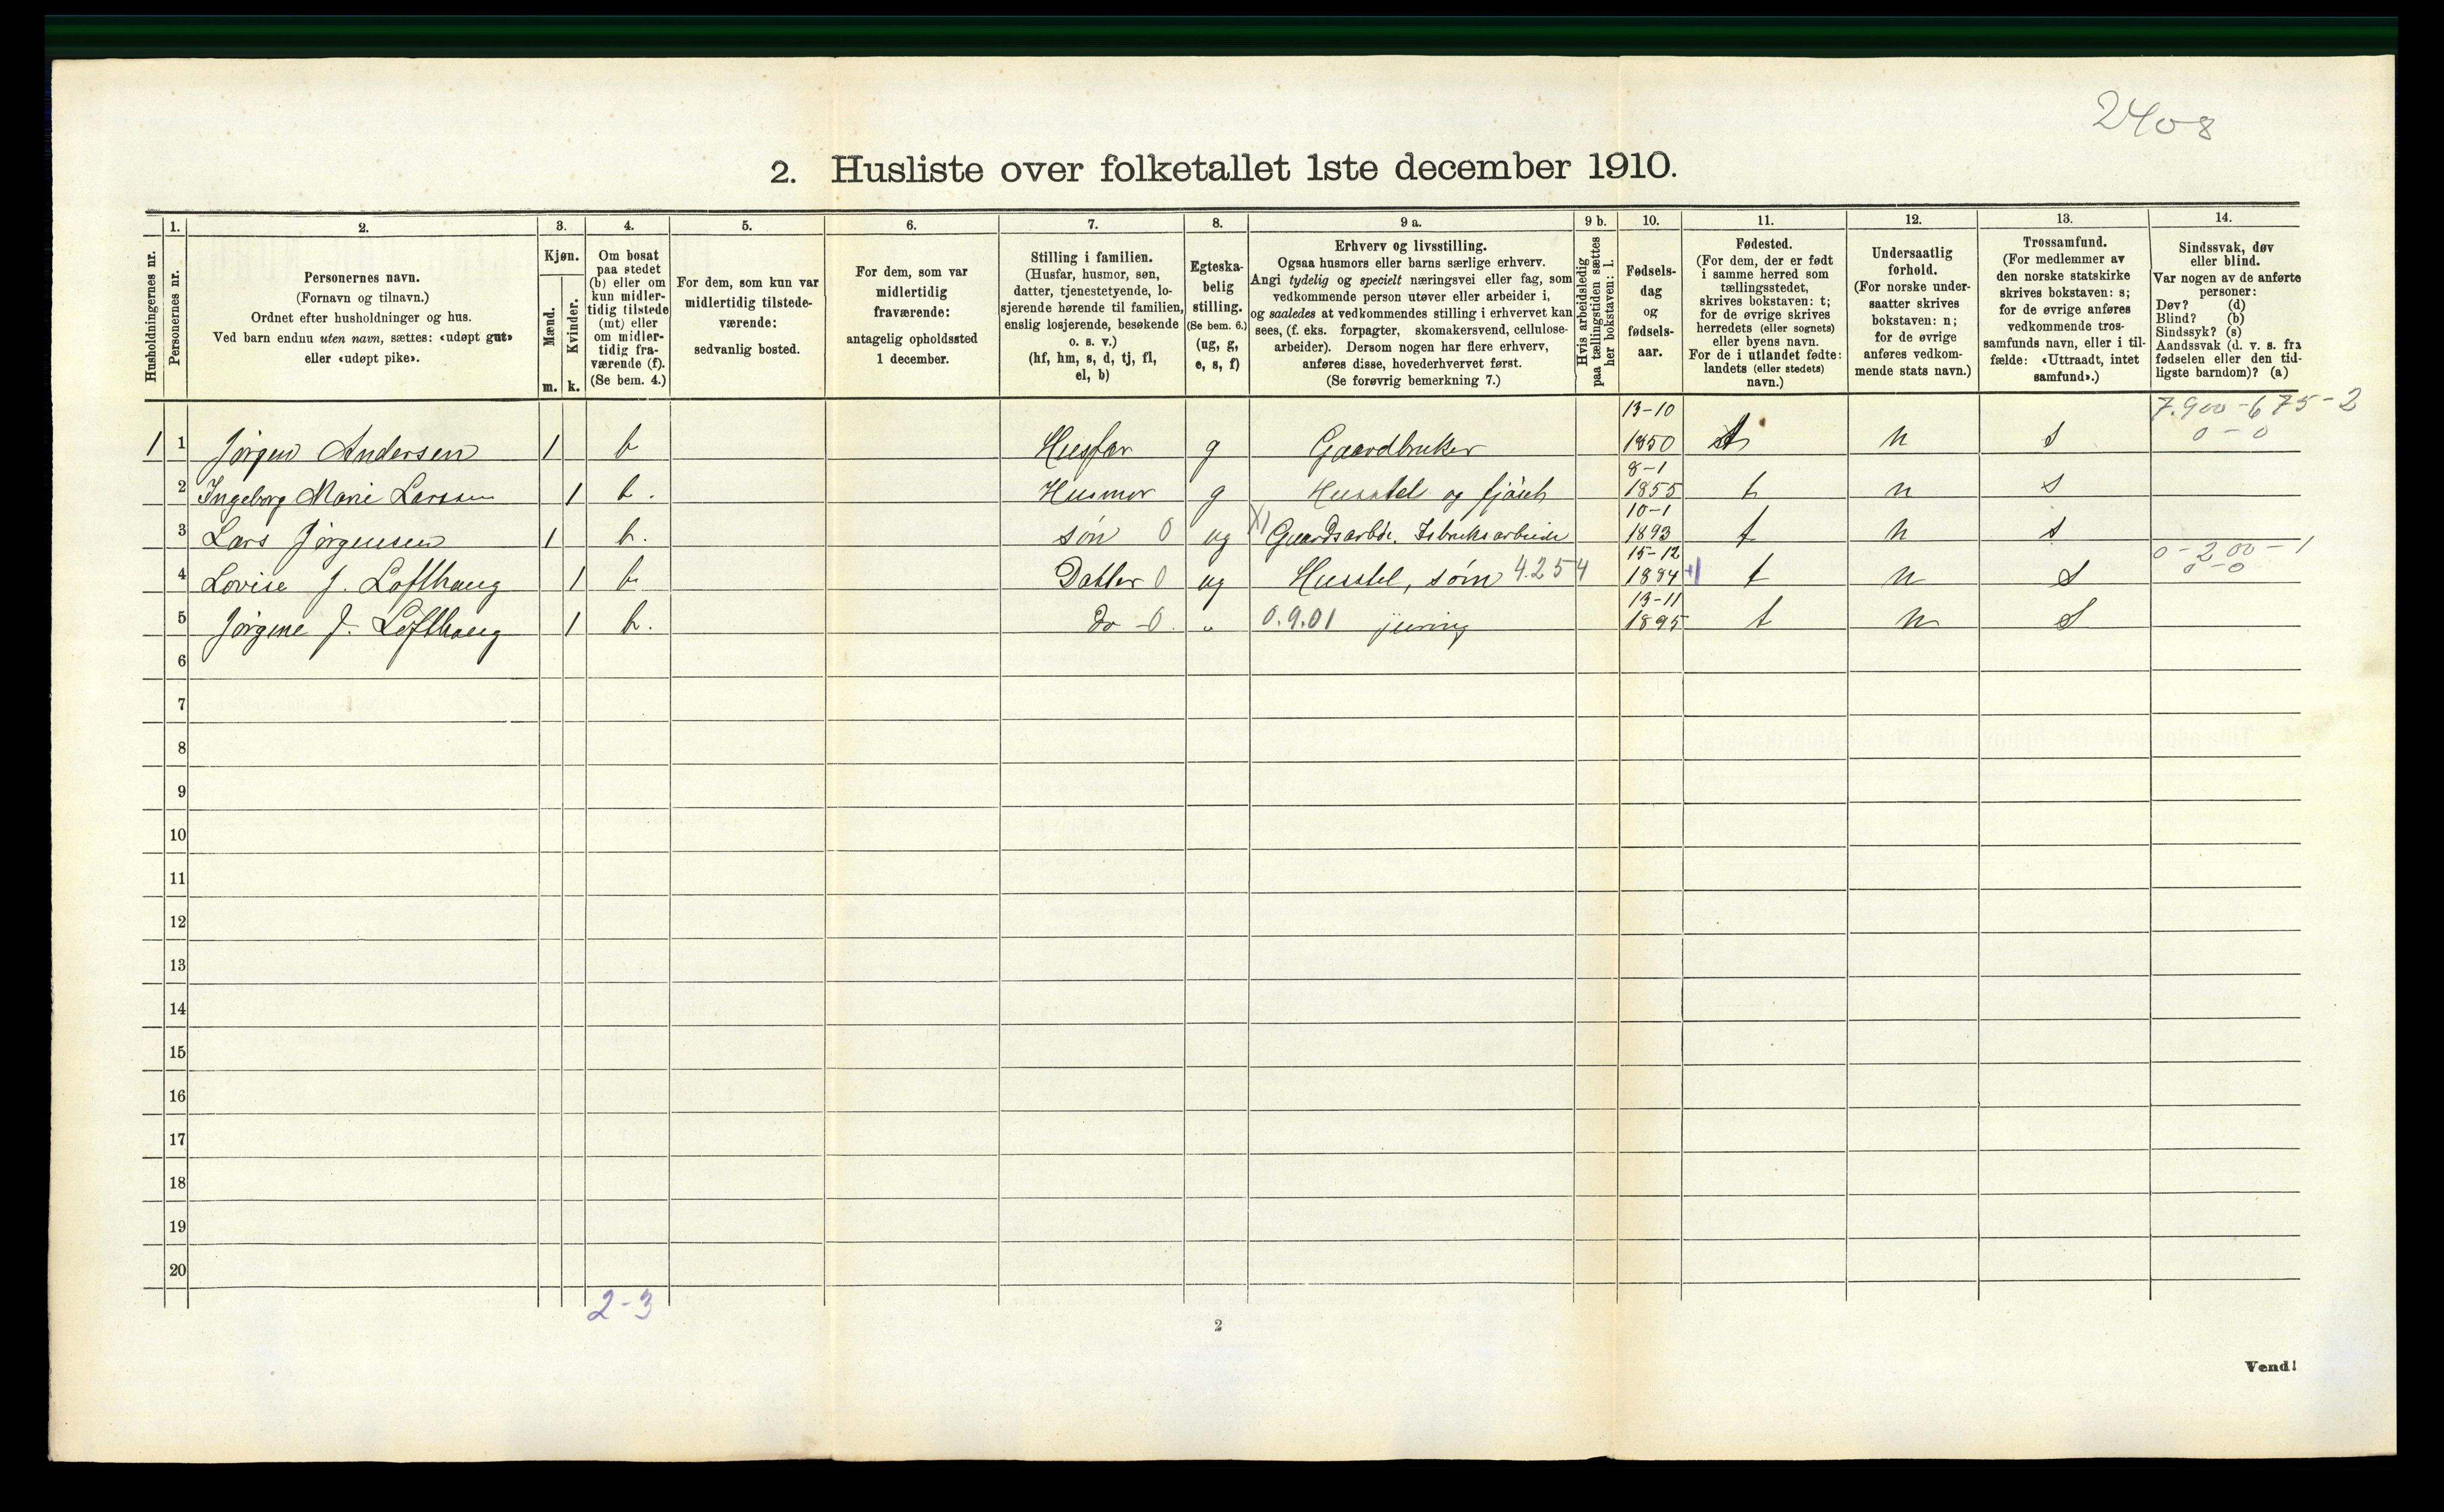 2408
2. Husliste over folketallet 1ste december 1910.
Husholdningernes nr.
1.
Personernes nr.
2.
Personernes navn.
(Fornavn og tilnavn.)
Ordnet efter husholdninger og hus.
Ved barn endnu uten navn, sættes: «udøpt gut»
eller «udøpt pike».
3.
Kjøn.
Mænd.
Kvinder.
m. k.
4.
Om bosat
paa stedet
(b) eller om
kun midler-
tidig tilstede
(mt) eller
om midler-
tidig fra-
værende (f).
(Se bem. 4.)
5.
For dem, som kun var
midlertidig tilstede-
værende:
sedvanlig bosted.
6.
For dem, som var
midlertidig
fraværende:
antagelig opholdssted
1 december.
7.
Stilling i familien.
(Husfar, husmor, søn,
datter, tjenestetyende, lo-
sjerende hørende til familien,
enslig losjerende, besøkende
o. s. v.)
(hf, hm, s, d, tj, fl,
el, b)
8.
Egteska-
belig
stilling.
(Se bem. 6.)
(ug, g,
e, s, f)
9 a.
Erhverv og livsstilling.
Ogsaa husmors eller barns særlige erhverv.
Angi tydelig og specielt næringsvei eller fag, som
vedkommende person utøver eller arbeider i,
og saaledes at vedkommendes stilling i erhvervet kan
sees, (f. eks. forpagter, skomakersvend, cellulose-
arbeider). Dersom nogen har flere erhverv,
anføres disse, hovederhvervet først.
(Se forøvrig bemerkning 7.)
9 b.
Hvis arbeidsledig
paa tællingstiden sættes
her bokstaven: l.
10.
Fødsels-
dag
og
fødsels-
aar.
11.
Fødested.
(For dem, der er født
i samme herred som
tællingsstedet,
skrives bokstaven: t;
for de øvrige skrives
herredets (eller sognets)
eller byens navn.
For de i utlandet fødte:
landets (eller stedets)
navn.)
12.
Undersaatlig
forhold.
(For norske under-
saatter skrives
bokstaven: n;
for de øvrige
anføres vedkom-
mende stats navn.)
13.
Trossamfund.
(For medlemmer av
den norske statskirke
skrives bokstaven: s;
for de øvrige anføres
vedkommende tros-
samfunds navn, eller i til-
fælde: «Uttraadt, intet
samfund».)
14.
Sindssvak, døv
eller blind.
Var nogen av de anførte
personer:
Døv? (d)
Blind? (b)
Sindssyk? (s)
Aandssvak (d. v. s. fra
fødselen eller den tid-
ligste barndom)? (a)
7.900-675-2
1 1 Jørgen Andersen 1 b Husfar g Gaardbruker 13-10 1850 t n s 0-0
2 Ingeborg Marie Larsen 1 b. Husmor g Husstel og fjøset 8-1 1855 t n s
3 Lars Jørgensen 1 b. søn 0 ug Gaardsarbdr. Isbruksarbeide 10-1 1893 t n s
0-200-1
4 Lovise J. Lofthaug 1 b Datter 0 ug Husstel, søm 4.254 15-12 1884 t n s 0-0
5 Jørgine J. Lofthaug 1 b. do 0. " 0.9.01 13-11 1895 t n s
6
7
8
9
10
11
12
13
14
15
16
17
18
19
20
2-3
2
Vend!